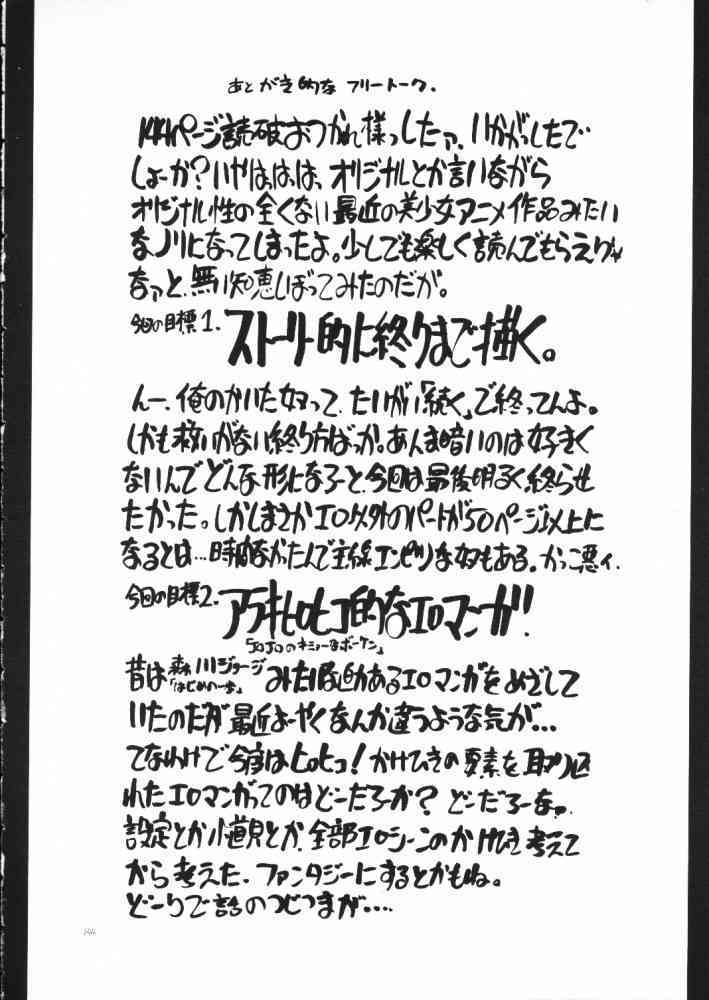 あとがき的なフリートーク.
144ページ読破おつかれ様っしたァ、いかがっしたで
しょーか？いやはっはっは、オリジナルとか言いながら
オリジナル性の全くない最近の美少女アニメ作品みたい
なノリになってしまったよ。少しでも楽しく読んでもらえりゃ
なァと、無い知恵しぼってみたのだが。
今回の目標1. ストーリー的に終りまで描く。
んー、俺のかいた奴って、たいがい「続く」で終ってんよ。
しかも救いがない終り方ばっか。あんま暗いのは好きく
ないんでどんな形になろーと、今回は最後明るく終らせ
たかった。しかしまさかエロ以外のパートが50ページ以上に
なるとは…時間なかたんで主線エンピツな奴もある。かっこ悪ィ.
今回の目標2. アラキヒロヒコ的なエロマンガ!
「JOJOのキミョーなボーケン」
昔は森川ジョージみたいな動あるエロマンガをめざして
「はじめの一歩」
いたのだが最近よーやくなんか違うような気が…
てなわけで今度はヒロヒコ！かけひきの要素を取り込
れたエロマンガってのはどーだろーか？どーだろーなァ.
設定とか小道具とか、全部エロシーンのかけひき考えて
から考えた、ファンタジーにするとかもね。
どーりで話のつじつまが…
144